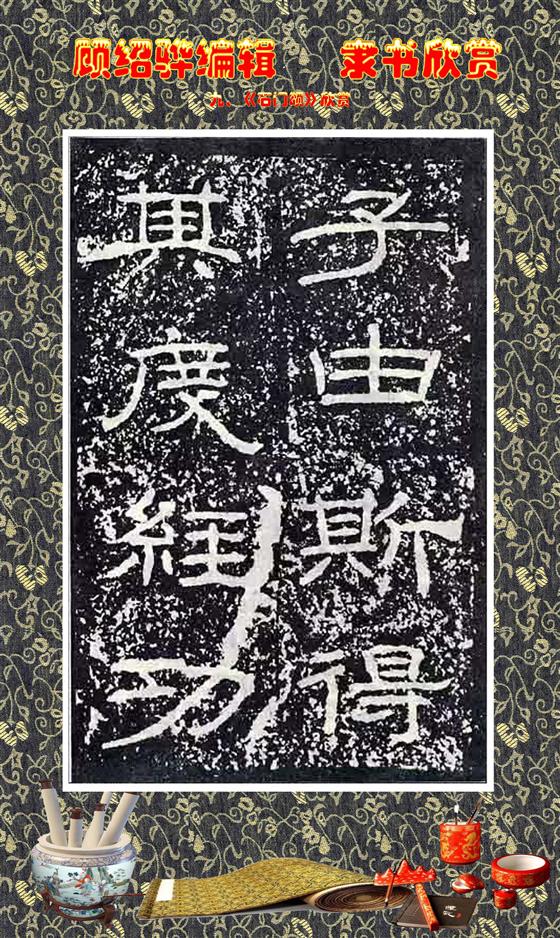 顾绍骅编辑 隶书欣赏
九、《石门颂》欣赏
子由斯得
其度经功